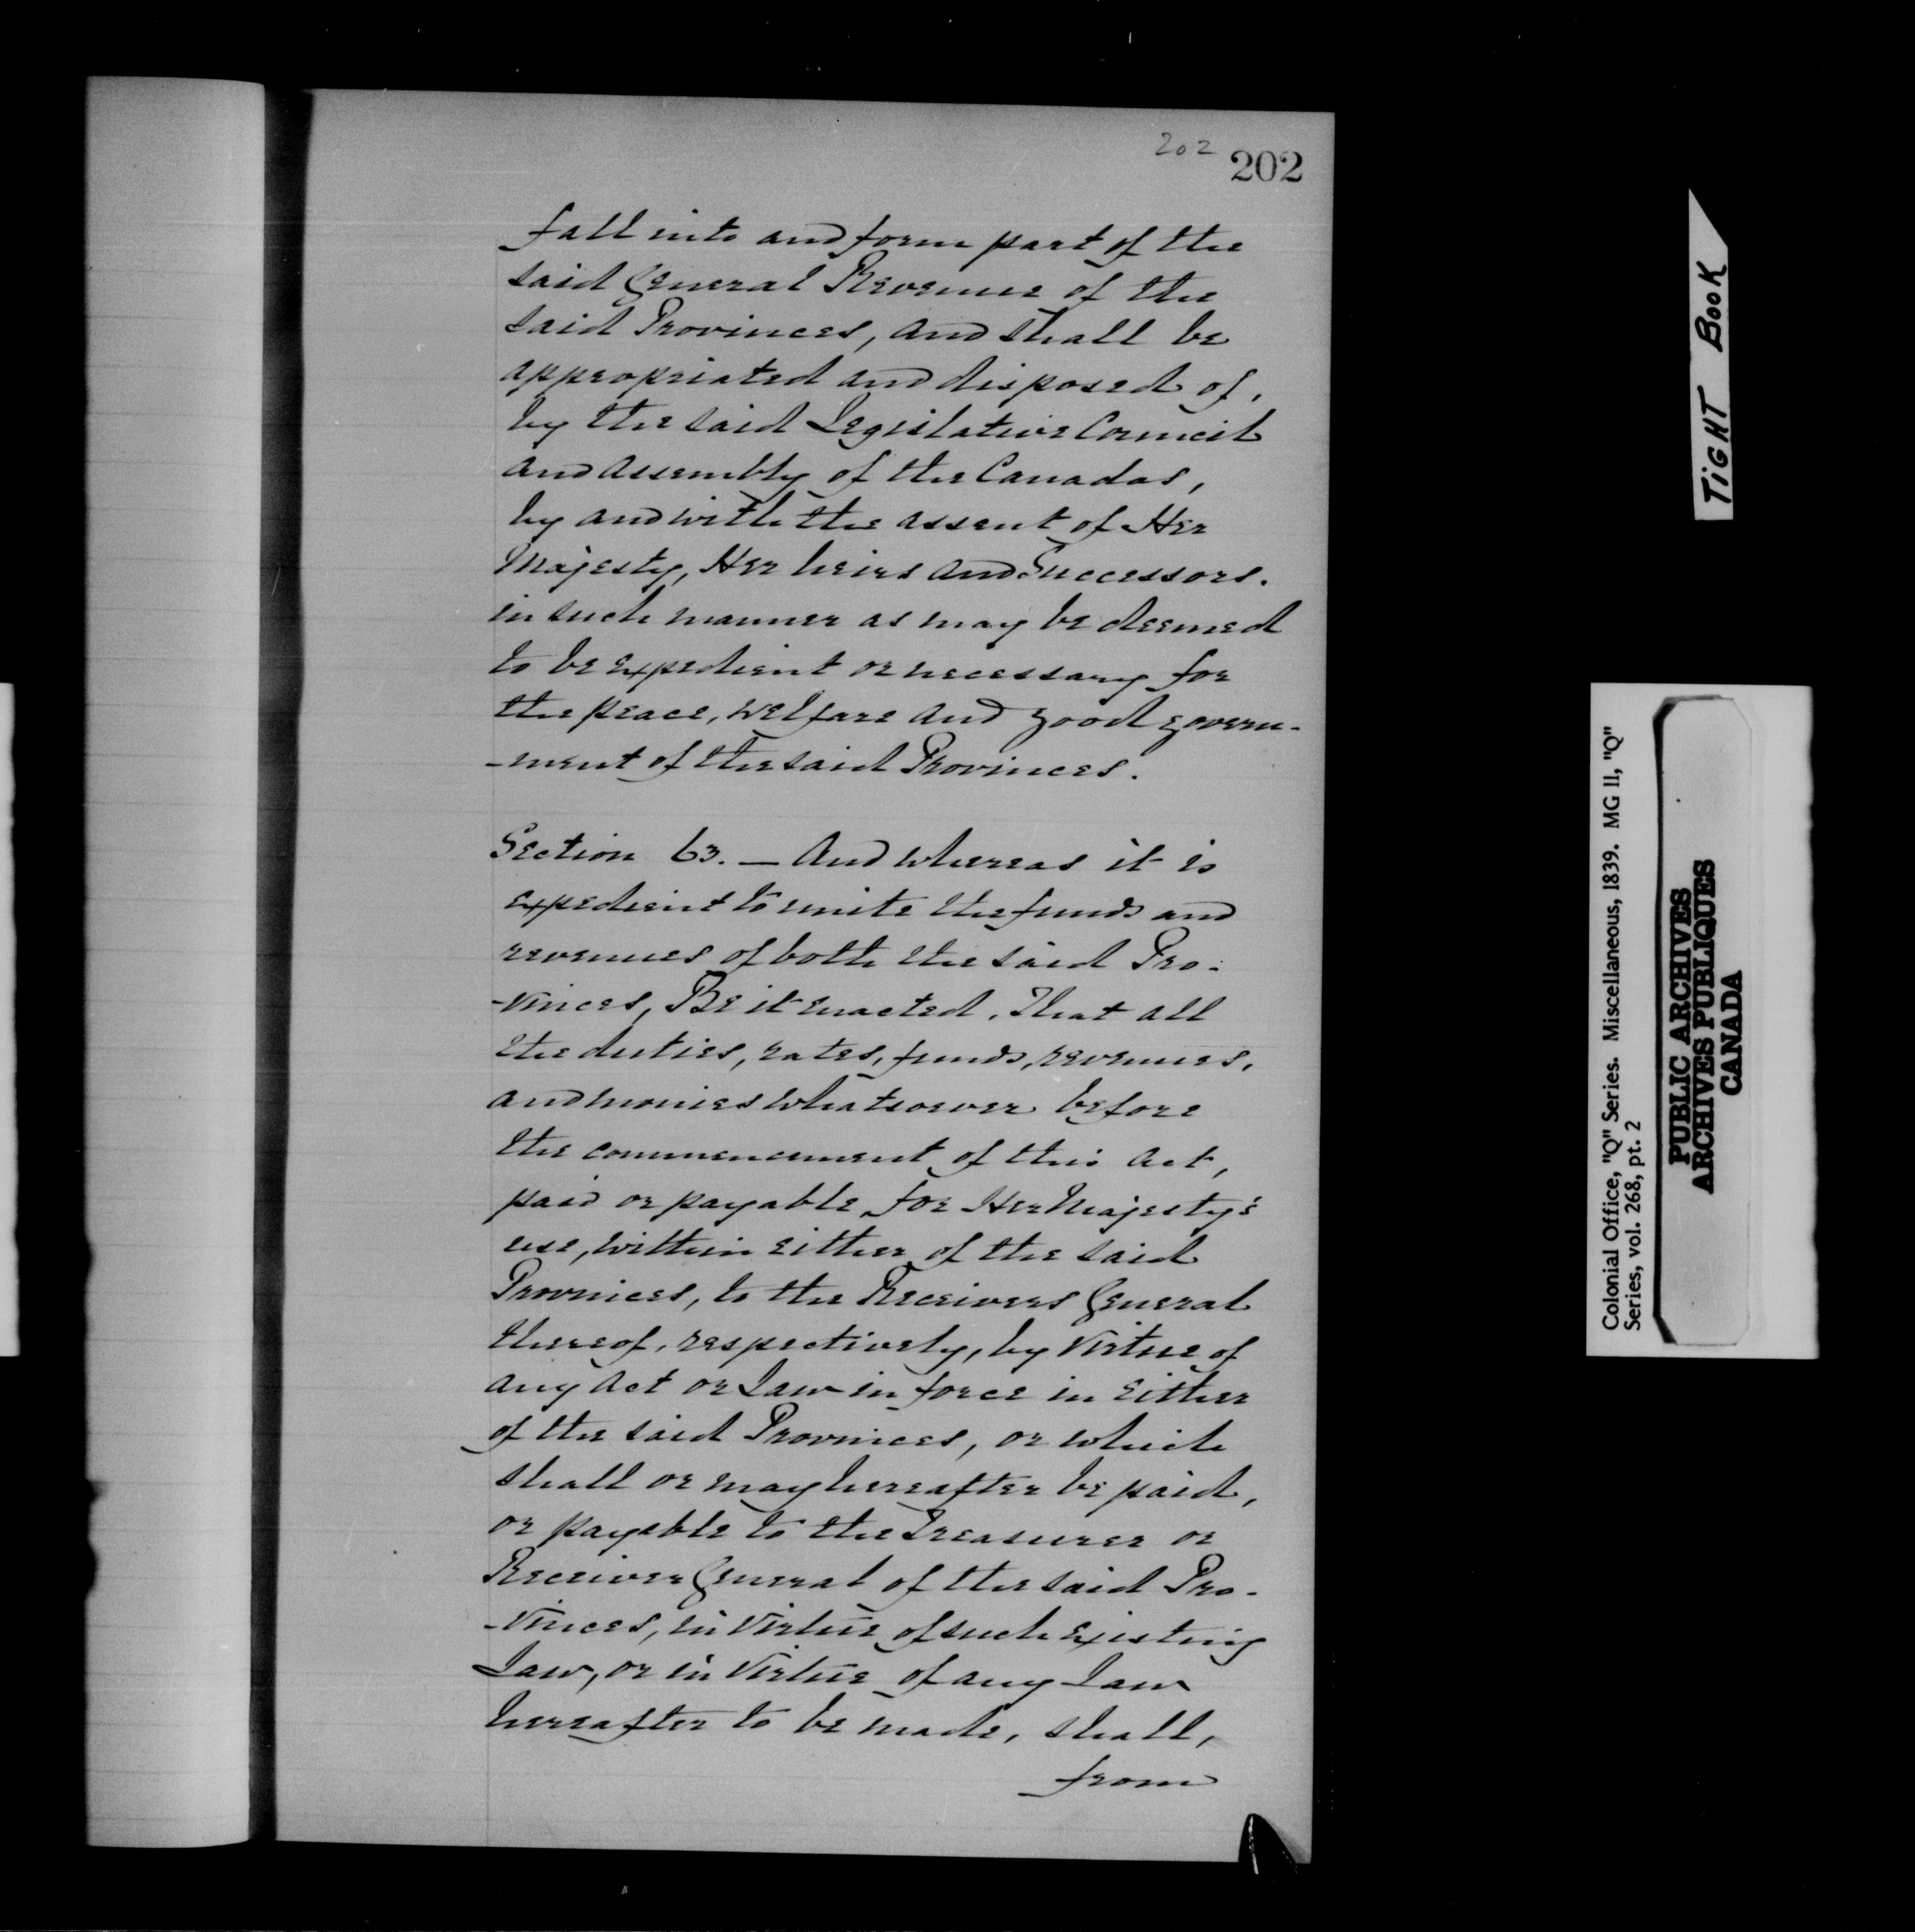 202
202
fall into and form part of the
said General Revenue of the
said Provinces, and shall be
appropriated and disposed of,
by the said Legislative Council
and Assembly of the Canadas,
by and with the assent of Her
Majesty, Her heirs and Successors.
in such manner as may be deemed
to be expedient or necessary for
the peace, welfare and good govern-
-ment of the said Provinces.
Section 63. — And whereas it is
expedient to unite the funds and
revenues of both the said Pro-
-vinces, Be it enacted, That all
the duties, rates, funds, revenues,
and monies whatsoever before
the commencement of this Act,
paid or payable for Her Majesty's
use, within either of the said
Provinces, to the Receivers General
thereof, respectively, by virtue of
any Act or Law in force in either
of the said Provinces, or which
shall or may hereafter be paid,
or payable to the Treasurer or
Receiver General of the said Pro-
-vinces, in virtue of such existing
Law, or in virtue of any Law
hereafter to be made, shall,
from
TIGHT BOOK
Colonial Office, "Q" Series. Miscellaneous, 1839. MG 11, "Q"
Series, vol. 268, pt. 2
PUBLIC ARCHIVES
ARCHIVES PUBLIQUES
CANADA